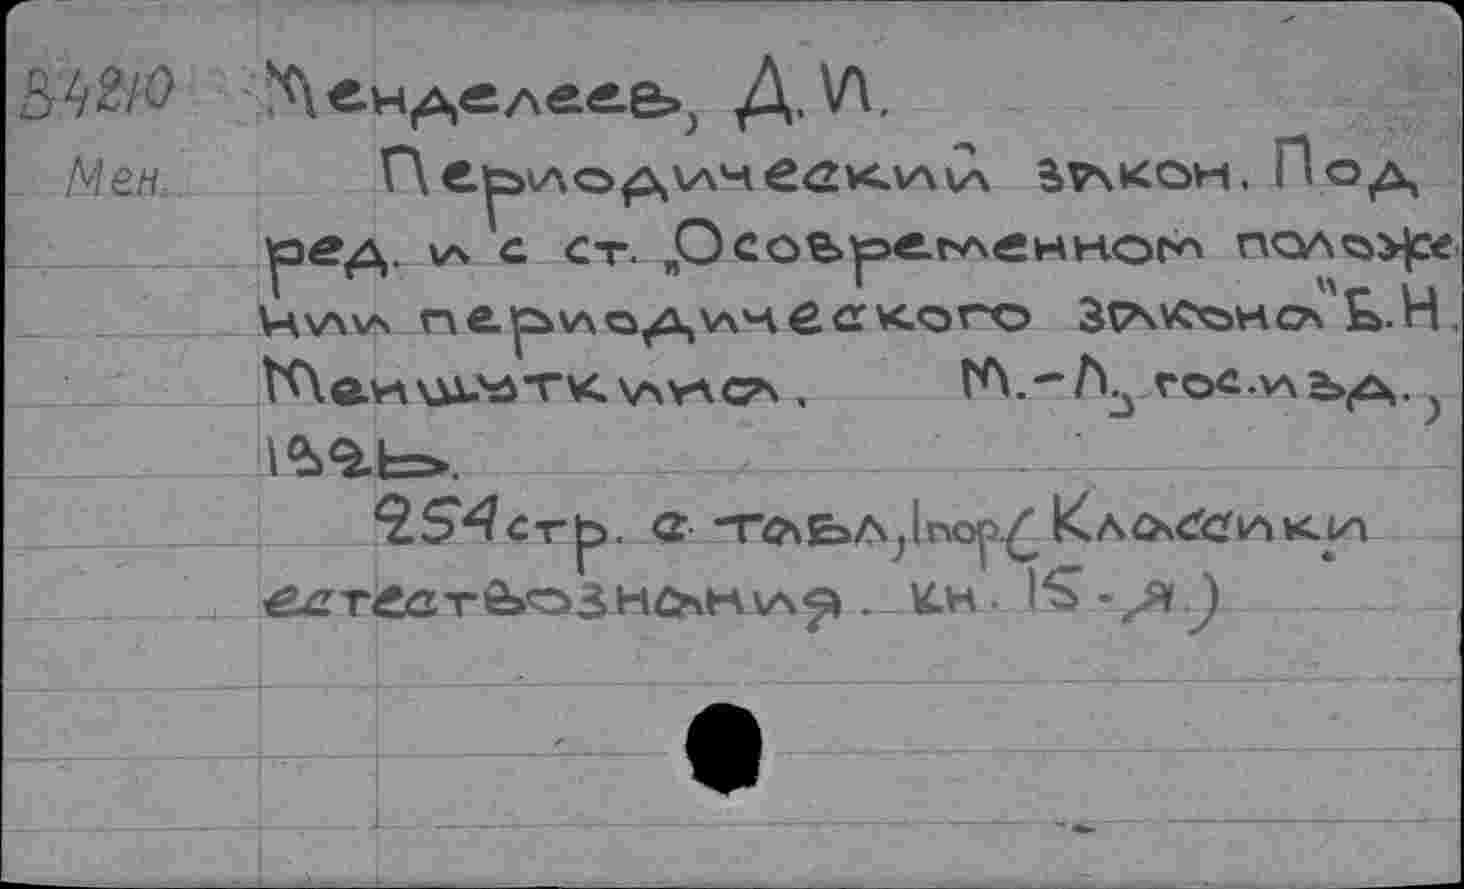 В421О Менделеев, Д. И.
Мен. Периодический закон. Под
ред. и с ст. „О современном положе
нии периодического закона" Б. Н.
Меншуткина. М.-Л., гос. изд.,
192
254 стр. с табл., 1 пор. (Классики
естествознания. Кн. 15-я)